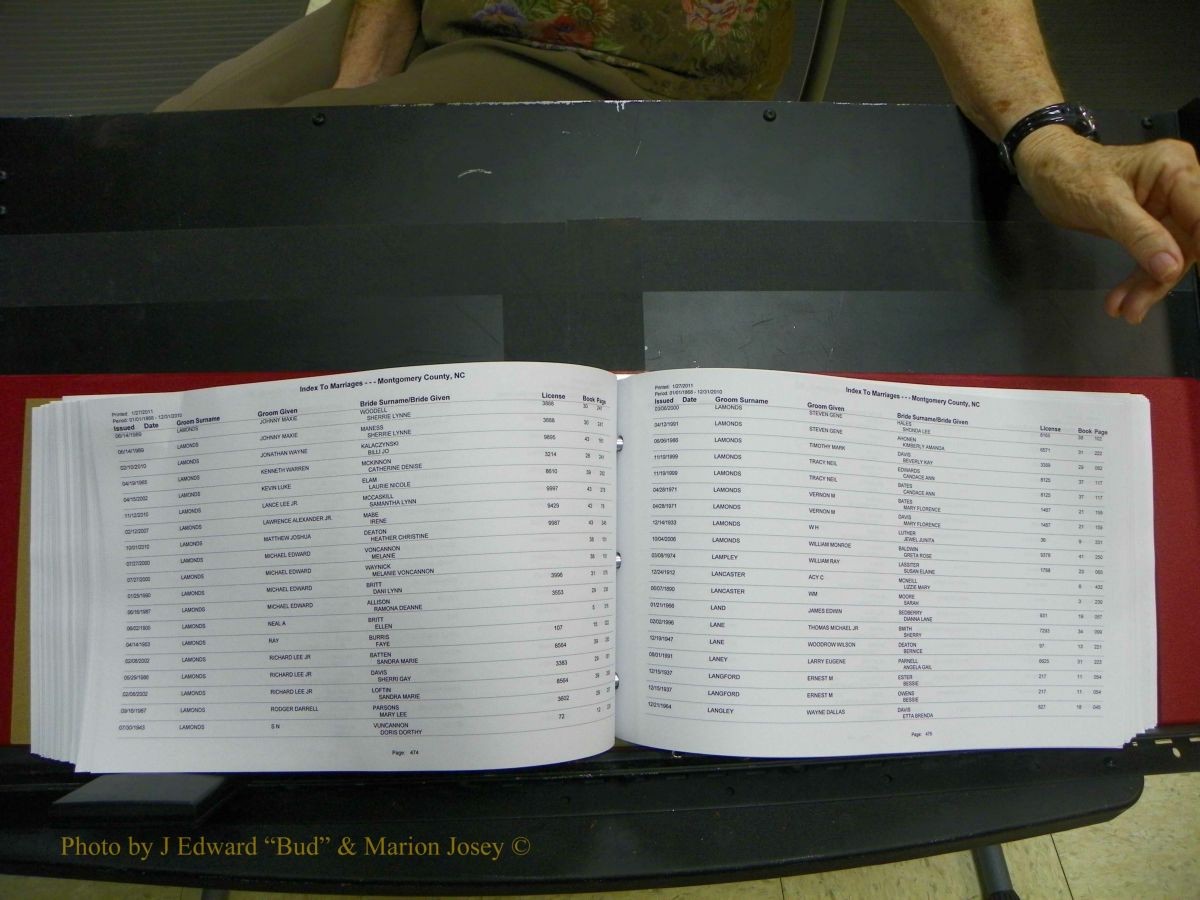 Index To Marriages - - - Montgomery County, NC
Printed: 1/27/2011
Period: 01/01/1868 - 12/31/2010
Issued Date Groom Surname Groom Given Bride Surname/Bride Given License Book Page
06/14/1989 LAMONDS JOHNNY MAXIE WOODELL 3888 30 241
SHERRIE LYNNE
06/14/1989 LAMONDS JOHNNY MAXIE MANESS 3888 30 241
SHERRIE LYNNE
02/10/2010 LAMONDS JONATHAN WAYNE KALACZYNSKI 9895 43
BILLI JO
04/19/1985 LAMONDS KENNETH WARREN MCKINNON 3214 28 241
CATHERINE DENISE
04/15/2002 LAMONDS KEVIN LUKE ELAM 8610 39
LAURIE NICOLE
11/12/2010 LAMONDS LANCE LEE JR. MCCASKILL 9997 43
SAMANTHA LYNN
02/12/2007 LAMONDS LAWRENCE ALEXANDER JR. MABE 9429
IRENE
10/01/2010 LAMONDS MATTHEW JOSHUA DEATON 9987 43
HEATHER CHRISTINE
07/27/2000 LAMONDS MICHAEL EDWARD VONCANNON 38
MELANIE
07/27/2000 LAMONDS MICHAEL EDWARD WAYNICK 38
MELANIE VONCANNON
01/25/1990 LAMONDS MICHAEL EDWARD BRITT 3996 31
DANI LYNN
06/16/1987 LAMONDS MICHAEL EDWARD ALLISON 3553 29
RAMONA DEANNE
06/02/1900 LAMONDS NEAL A BRITT 5
ELLEN
04/14/1963 LAMONDS RAY BURRIS 107
FAYE
02/08/2002 LAMONDS RICHARD LEE JR BATTEN 8564 39
SANDRA MARIE
05/29/1986 LAMONDS RICHARD LEE JR DAVIS 3383 29
SHERRI GAY
02/08/2002 LAMONDS RICHARD LEE JR LOFTIN 8564 39
SANDRA MARIE
09/16/1987 LAMONDS RODGER DARRELL PARSONS 3602 29
MARY LEE
07/30/1943 LAMONDS S N VUNCANNON 72 12
DORIS DORTHY
Page: 474
Index To Marriages - - - Montgomery County, NC
Printed: 1/27/2011
Period: 01/01/1868 - 12/31/2010
Issued Date Groom Surname Groom Given Bride Surname/Bride Given License Book Page
03/06/2000 LAMONDS STEVEN GENE HALES 8165 38 102
SHONDA LEE
04/12/1991 LAMONDS STEVEN GENE AHONEN 31 222
KIMBERLY AMANDA
06/06/1986 LAMONDS TIMOTHY MARK DAVIS 3389 29 082
BEVERLY KAY
11/19/1999 LAMONDS TRACY NEIL EDWARDS 8125 37 117
CANDACE ANN
11/19/1999 LAMONDS TRACY NEIL BATES 8125 37 117
CANDACE ANN
04/28/1971 LAMONDS VERNON M BATES 1487 21 159
MARY FLORENCE
04/28/1971 LAMONDS VERNON M DAVIS 1487 21 159
MARY FLORENCE
12/14/1933 LAMONDS W H LUTHER 36 9 231
JEWEL JUNITA
10/04/2006 LAMONDS WILLIAM MONROE BALDWIN 9378 41 250
GRETA ROSE
03/08/1974 LAMPLEY WILLIAM RAY LASSITER 1758 23 060
SUSAN ELAINE
12/24/1912 LANCASTER ACY C MCNEILL 6 432
LIZZIE MARY
06/07/1890 LANCASTER WM MOORE 3 230
SARAH
01/21/1966 LAND JAMES EDWIN SEDBERRY 931 19 087
DIANNA LANE
02/02/1996 LANE THOMAS MICHAEL JR SMITH 7293 34 099
SHERRY
12/19/1947 LANE WOODROW WILSON DEATON 97 13 221
BERNICE
08/01/1991 LANEY LARRY EUGENE PARNELL 6625 31 223
ANGELA GAIL
12/15/1937 LANGFORD ERNEST M ESTER 217 11 054
BESSIE
12/15/1937 LANGFORD ERNEST M OWENS 217 11 054
BESSIE
12/21/1964 LANGLEY WAYNE DALLAS DAVIS 827 18 045
ETTA BRENDA
Page: 475
Photo by J Edward “Bud” & Marion Josey ©